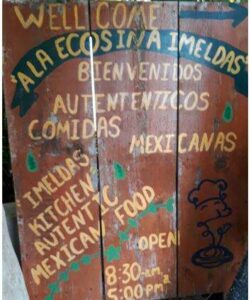 WELLCOME
"ALA ECOSINA IMELDAS"
BIENVENIDOS
AUTENTENTICOS
COMIDAS
MEXICANAS
IMELDAS
KITCHEN
AUTENTIC
MEXICAN FOOD
OPEN
8:30-am
5:00pm